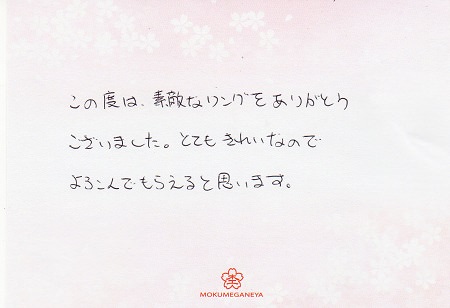 この度は、素敵なリングをありがとう
ございました。とてもきれいなので
よろこんでもらえると思います。
MOKUMEGANEYA